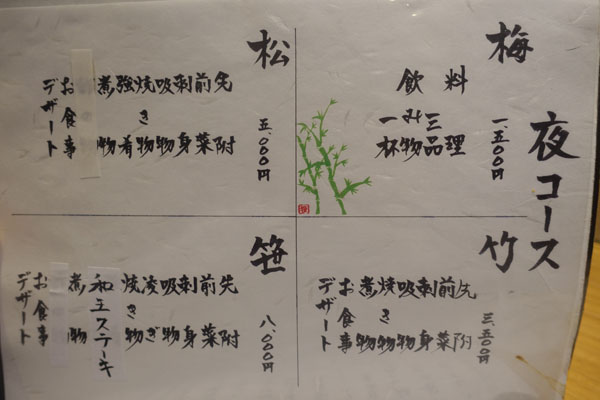 夜コース
梅
一、五〇〇円
料理
三品
飲み物
一杯
竹
三、五〇〇円
先附
前菜
刺身
吸物
焼き物
煮物
お食事
デザート
松
五、〇〇〇円
先附
前菜
刺身
吸物
焼き物
強肴
煮物
お食事
デザート
笹
八、〇〇〇円
先附
前菜
刺身
吸物
凌ぎ
焼き物
和王ステーキ
煮物
お食事
デザート